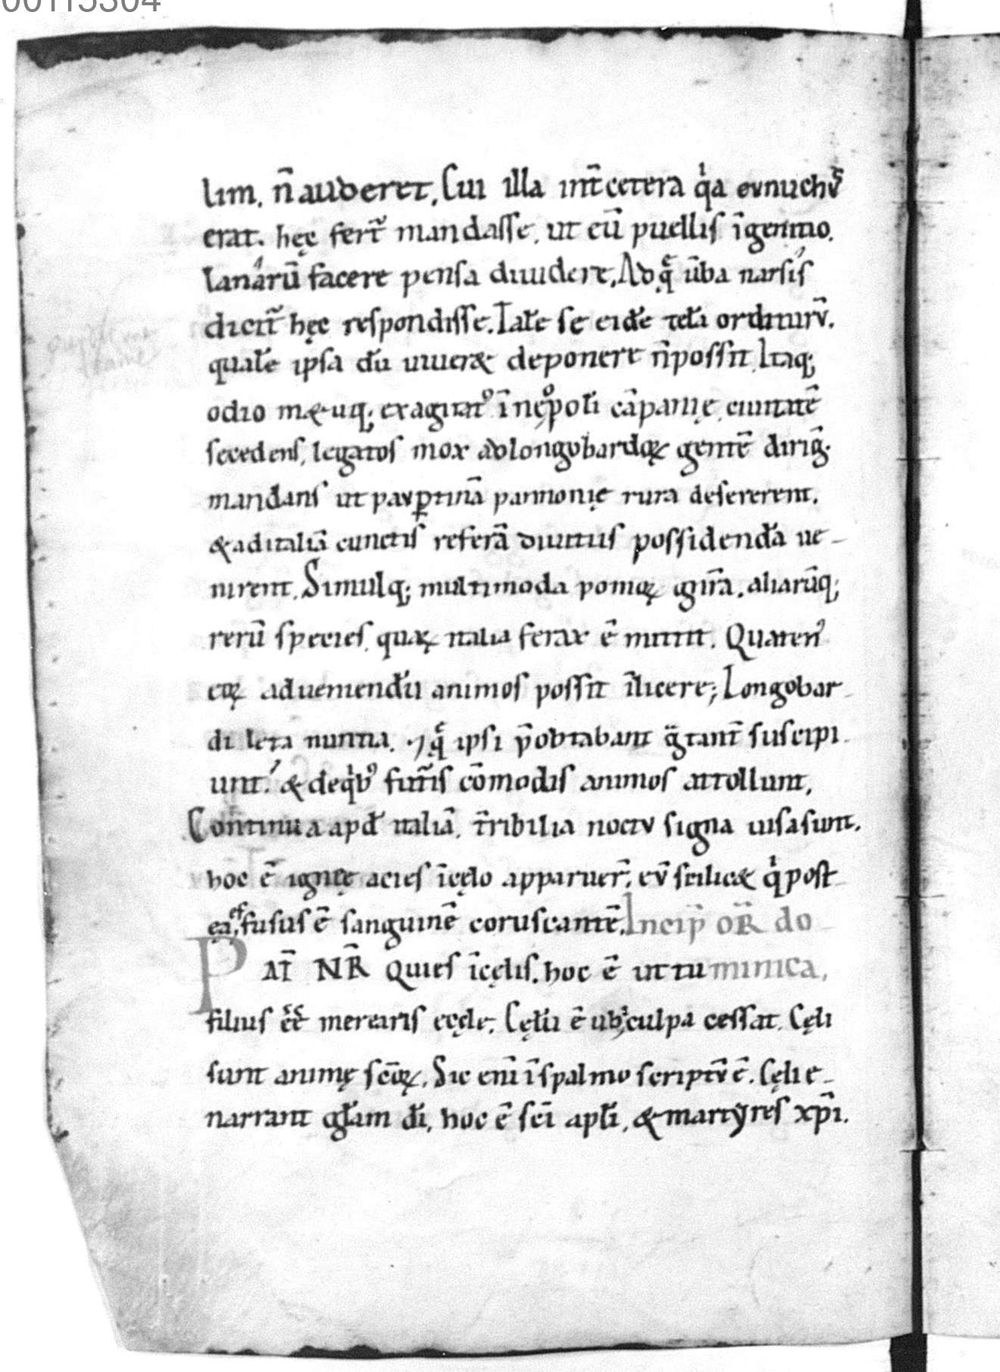 00115304
lim. n̄ auderet. Cui illa int̄ cetera qͥa eunuchꝰ
erat. hęc fert̄ mandasse. ut cū puellis īgenitio.
lanarū facere pensa diuidere. Ad q̄ ūba narsis
dicit̄ hęc respondisse. Tale se eidē telā orditurū.
qualē ipsa dū uiueret deponere n̄ possit. Itaq;
odio metuq; exagitatꝰ ī neapoli cāpanię ciuitatē
secedens. legatos mox ad longobardoꝝ gentē diriḡ.
mandans ut paupertinā pannonię rura desererent.
& ad italiā cunctis refertā diuitiis possidendā ue-
nirent. Simulq; multimoda pomoꝝ gn̄a. aliarūq;
rerū species. quaꝝ italia ferax ē mittit. Quatenꝰ
eoꝝ ad ueniendū animos possit īlicere; Longobar
di leta nuntia. ⁊ q̄ ipsi p̄obtabant g̈tant̄ suscipi
unt. & de qͥbꝰ futuris cōmodis animos attollunt.
Continua apđ italiā. t̄ribilia noctu signa uisa sunt.
hoc ē ignęe acies ī cęlo apparuer̄. eū scilicet qͥ post
ea effusus ē sanguinē coruscantē. Incip̄ oR̄ do
PAT̄ NR̄ Qui es ī cęlis. hoc ē ut tu minica.
filius eē merearis cęle. Cęlū ē ubi culpa cessat. Cęli
sunt animę scōꝝ. Sic eni ī spalmo scriptū ē. Cęli e-
narrant głam di. hoc ē sci apłi. & martyres xp̄i.